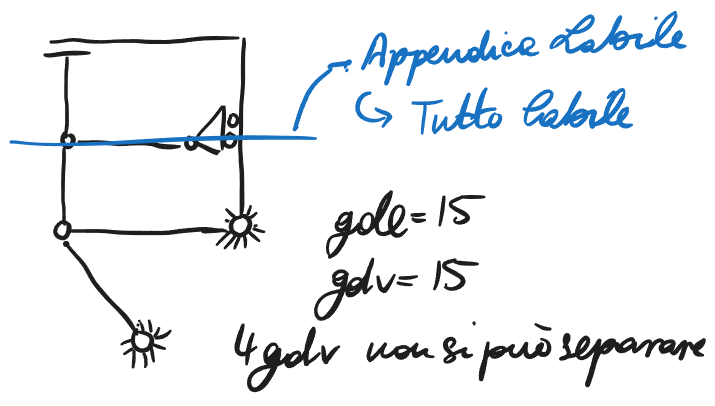 Appendica Labile
Tutto Labile
gdl=15
gdv=15
4gdv non si può separare